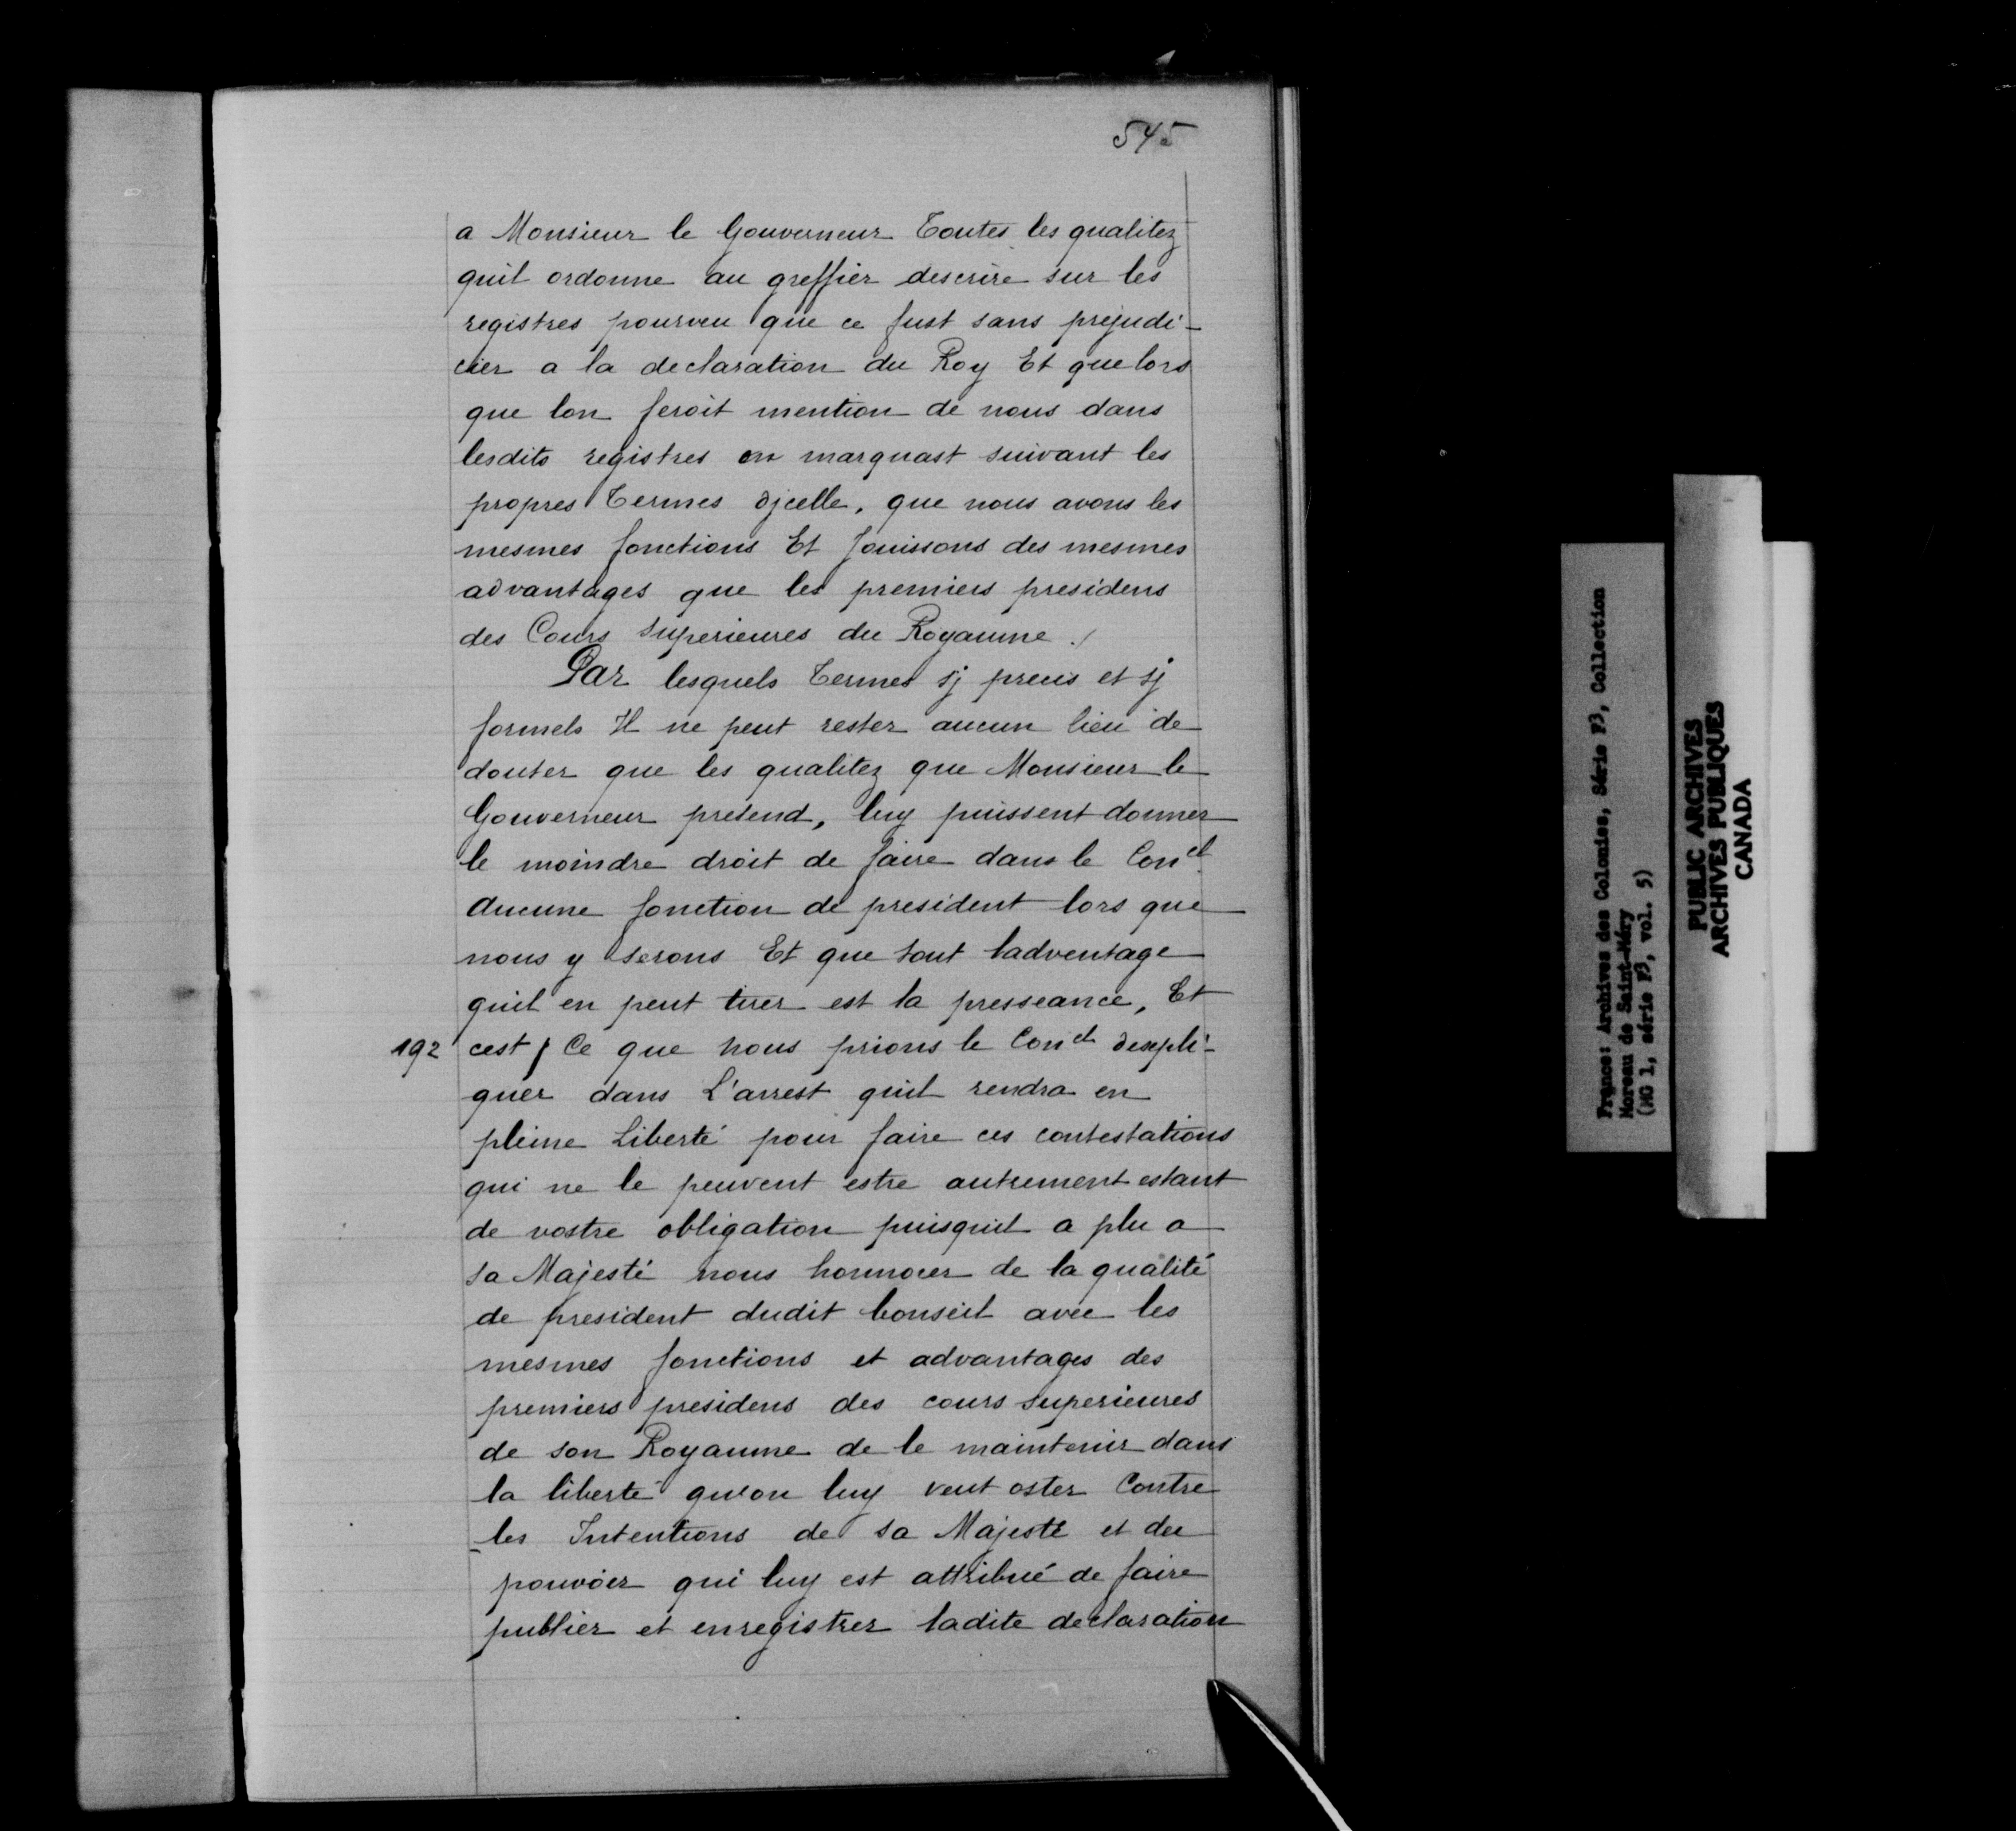 545
a Monsieur le Gouverneur Toutes les qualitez
quil ordonne au greffier descrire sur les
registres pourveu que ce fust sans prejudi-
cier a la declaration du Roy Et que lors
que lon feroit mention de nous dans
lesdits registres on marquast suivant les
propres Termes djcelle, que nous avons les
mesmes fonctions Et Jouissons des mesmes
advantages que les premiers presidens
des Cours superieures du Royaume ./
Par lesquels Termes sj precis et sj
formels Il ne peut rester aucun lieu de
douter que les qualitez que Monsieur le
Gouverneur pretend, luy puissent donner
le moindre droit de faire dans le Conel
Aucune fonction de president lors que
nous y serons Et que tout ladventage
quil en peut tirer est la presseance, Et
192 cest / Ce que nous prions le Conel dexpli-
quer dans L'arrest quil rendra en
pleine Liberté pour faire ces contestations
qui ne le peuvent estre autrement estant
de vostre obligation puisquil a plu a
sa Majesté nous honnorer de la qualité
de president dudit Conseil avec les
mesmes fonctions et advantages des
premiers presidens des cours superieures
de son Royaume de le maintenir dans
la liberté qu'on luy veut oster Contre
les Intentions de sa Majesté et du
pouvoir qui luy est attribué de faire
publier et enregistrer ladite declaration
France: Archives des Colonies, Série F3, Collection
Moreau de Saint-Méry
(MG 1, série F3, vol. 5)
PUBLIC ARCHIVES
ARCHIVES PUBLIQUES
CANADA